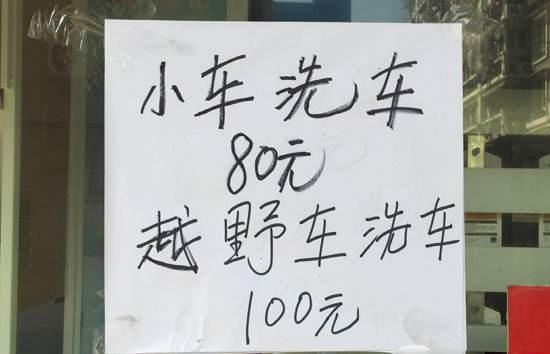 小车洗车
80元
越野车洗车
100元